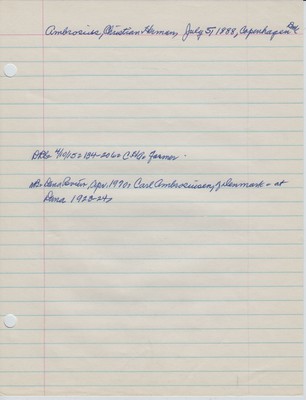 Ambrosius, Christian Herman, July 5, 1888, Copenhagen Den.
4/10/15: 184-206: Farmer.
Dana Review, Apr. 1970: Carl Ambrosiussen, Denmark - at
Dana 1923-24